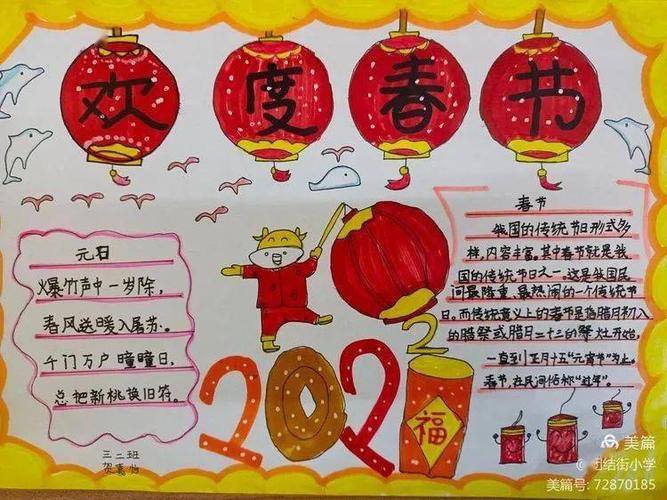 欢度春节
元日
爆竹声中一岁除,
春风送暖入屠苏。
千门万户曈曈日,
总把新桃换旧符。
三二班
春节
我国的传统节日形式多
样,内容丰富,其中春节就是我
国的传统节日之一,这是我国民
间最隆重、最热闹的一个传统节
日。而传统意义上的春节是指腊日初八
的腊祭或腊日二十二的祭灶开始,
一直到正月十五“元宵节”为止。
春节,在民间俗称“过年”。
202
福
美篇
@团结街小学
美篇号: 72870185